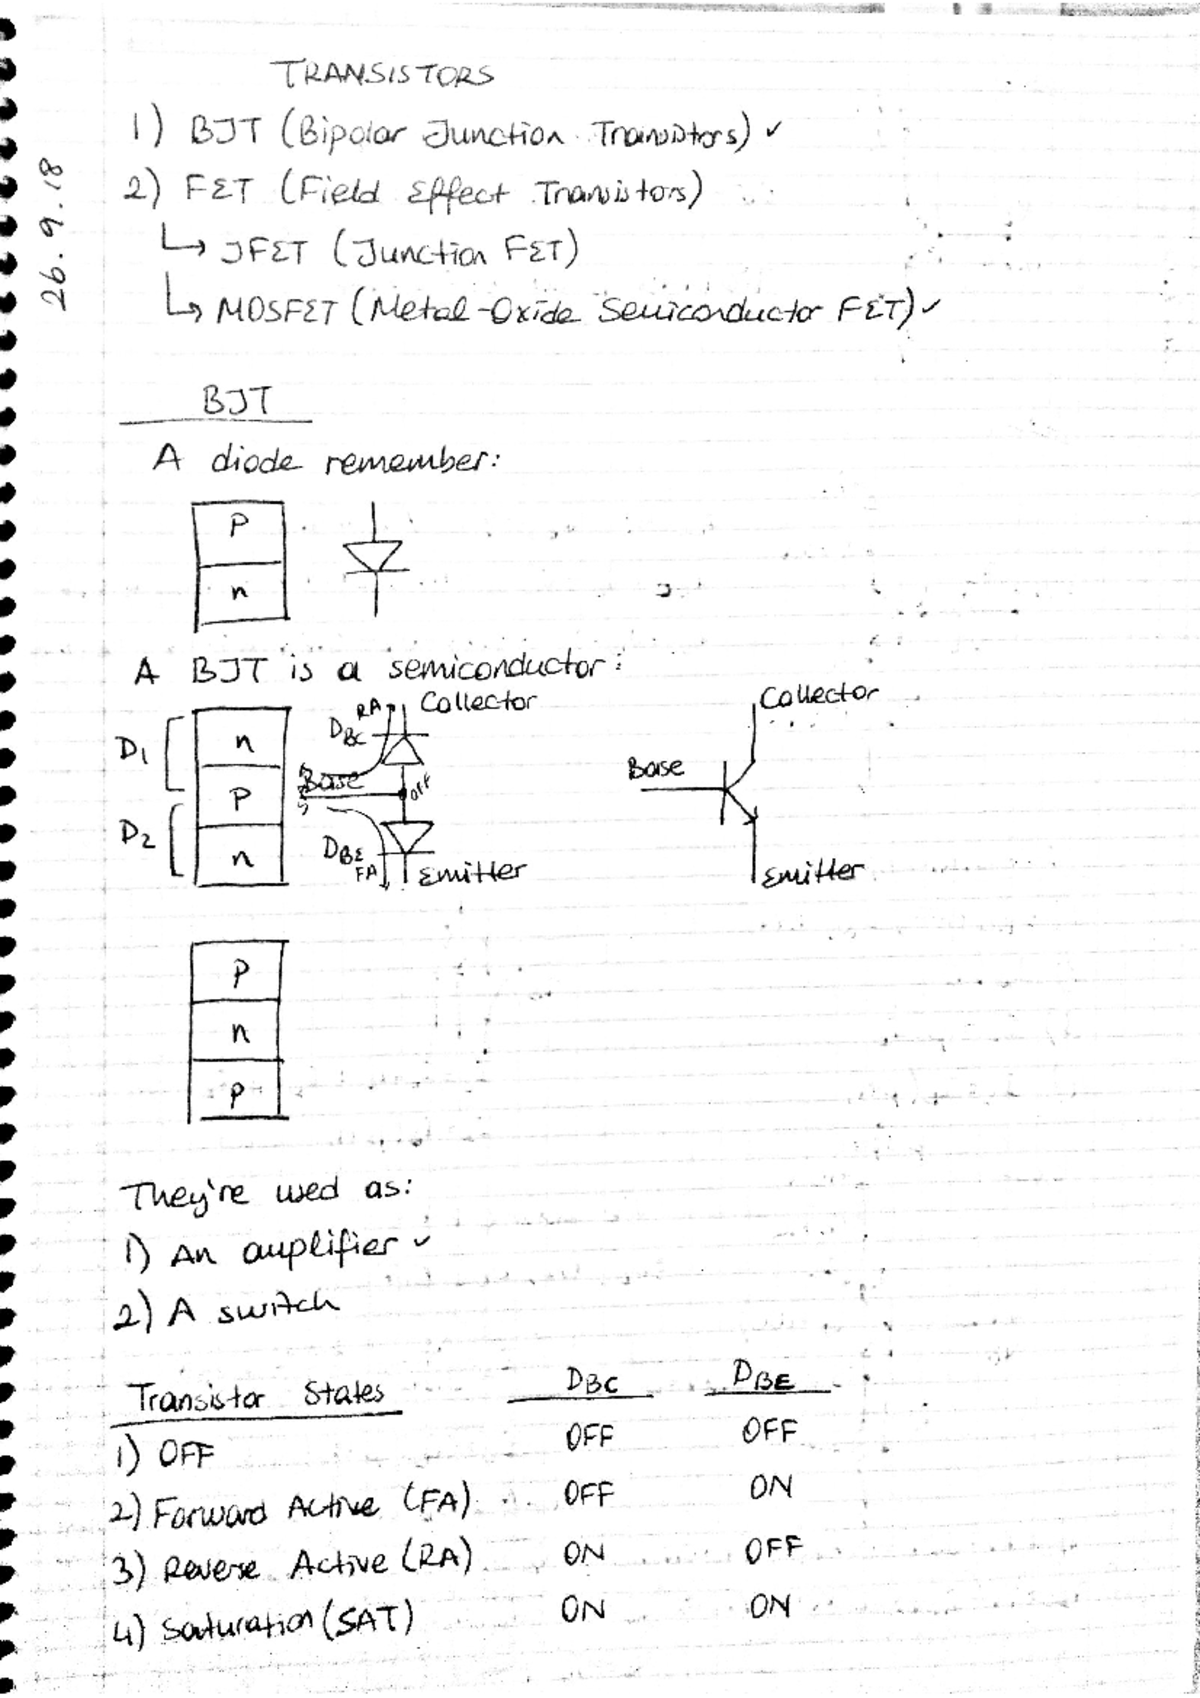 TRANSISTORS
26.9.18
1) BJT (Bipolar Junction Transistors) ✓
2) FET (Field Effect Transistors)
↳ JFET (Junction FET)
↳ MOSFET (Metal-Oxide Semiconductor FET) ✓
BJT
A diode remember:
P
n
A BJT is a semiconductor:
D1
n
P
D2
n
RA
Collector
DBC
Base
OFF
DBE
FA
Emitter
Collector
Base
Emitter
P
n
P
They're used as:
1) An amplifier ✓
2) A switch
Transistor States DBC DBE
1) OFF OFF OFF
2) Forward Active (FA) OFF ON
3) Reverse Active (RA) ON OFF
4) Saturation (SAT) ON ON